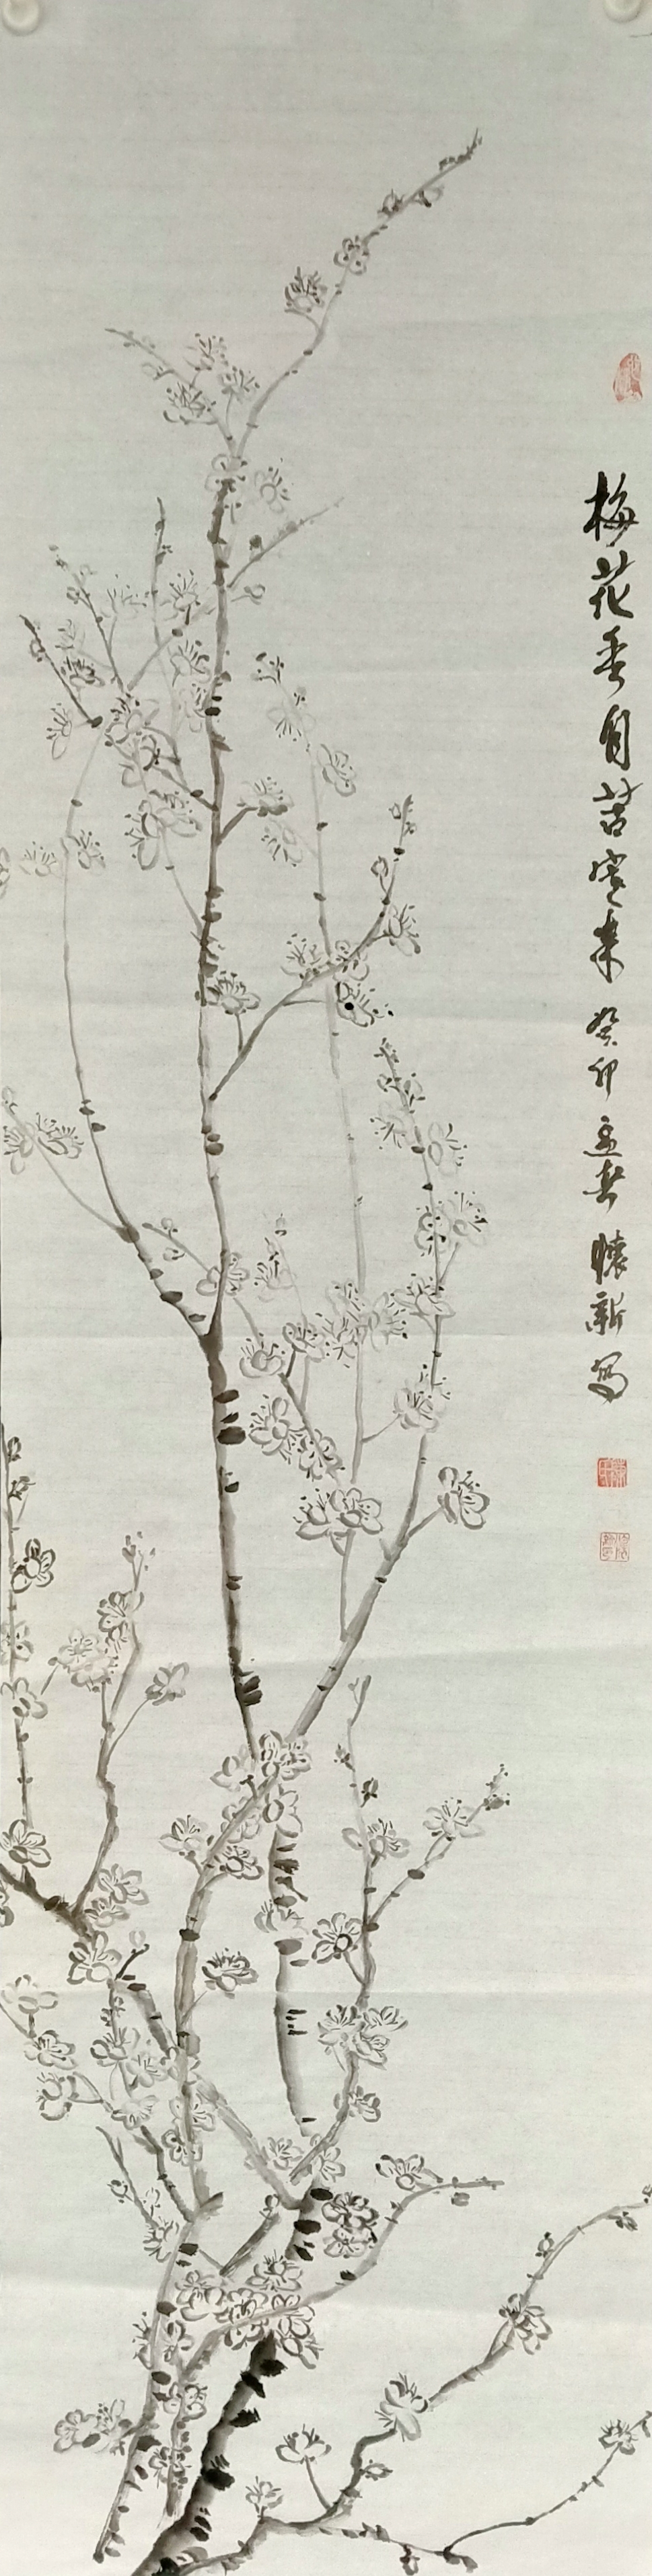 梅花香自苦寒来癸卯孟春懷新写